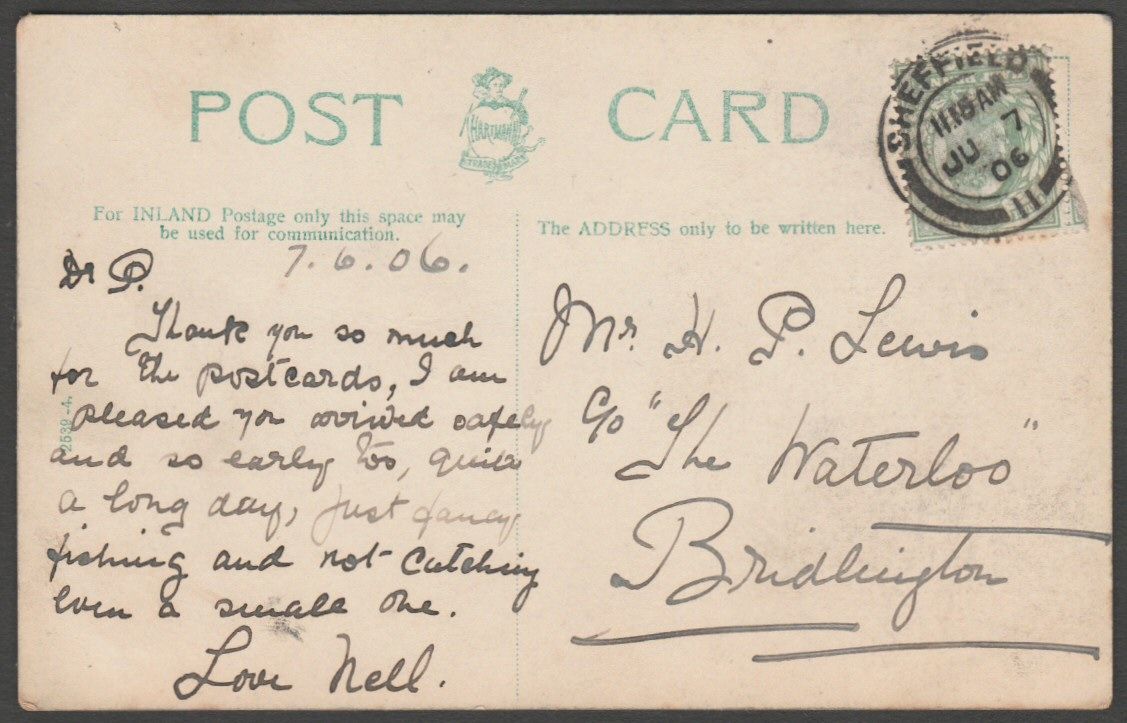 POST CARD
HARTMANN
TRADE MARK
SHEFFIELD
11.15 AM
JU 7
06
11
For INLAND Postage only this space may
be used for communication.
The ADDRESS only to be written here.
7.6.06.
Dr P.
Thank you so much
for the postcards, I am
pleased you arrived safely
and so early too, quite
a long day, just fancy
fishing and not catching
even a small one.
Love Nell.
2539-4.
Mr. H. P. Lewis
c/o "The Waterloo"
Bridlington